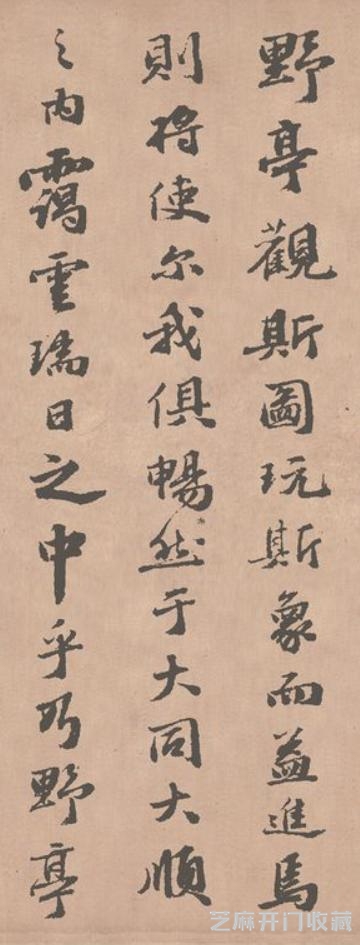 野亭觀斯圖玩斯象而益進焉
則將使尔我俱暢然于大同大順
之内靄雲瑞日之中乎乃野亭
芝麻开门收藏